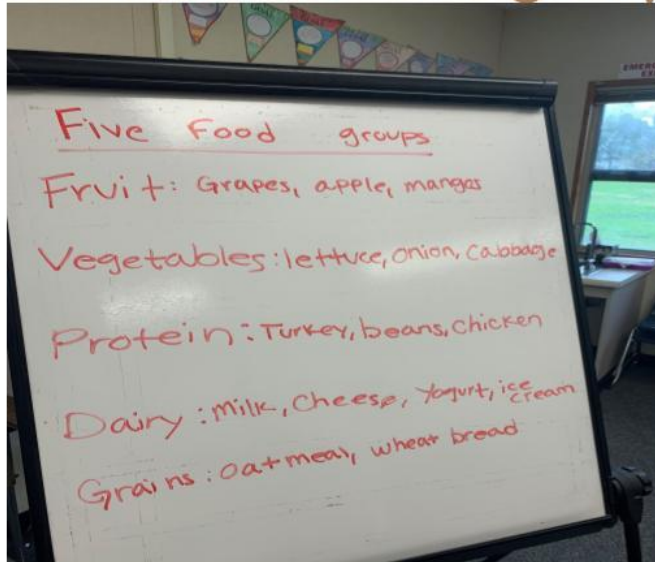 Five Food groups
Fruit: Grapes, apple, mangos
Vegetables: lettuce, onion, cabbage
Protein: Turkey, beans, chicken
Dairy: milk, cheese, yogurt, ice cream
Grains: oatmeal, wheat bread